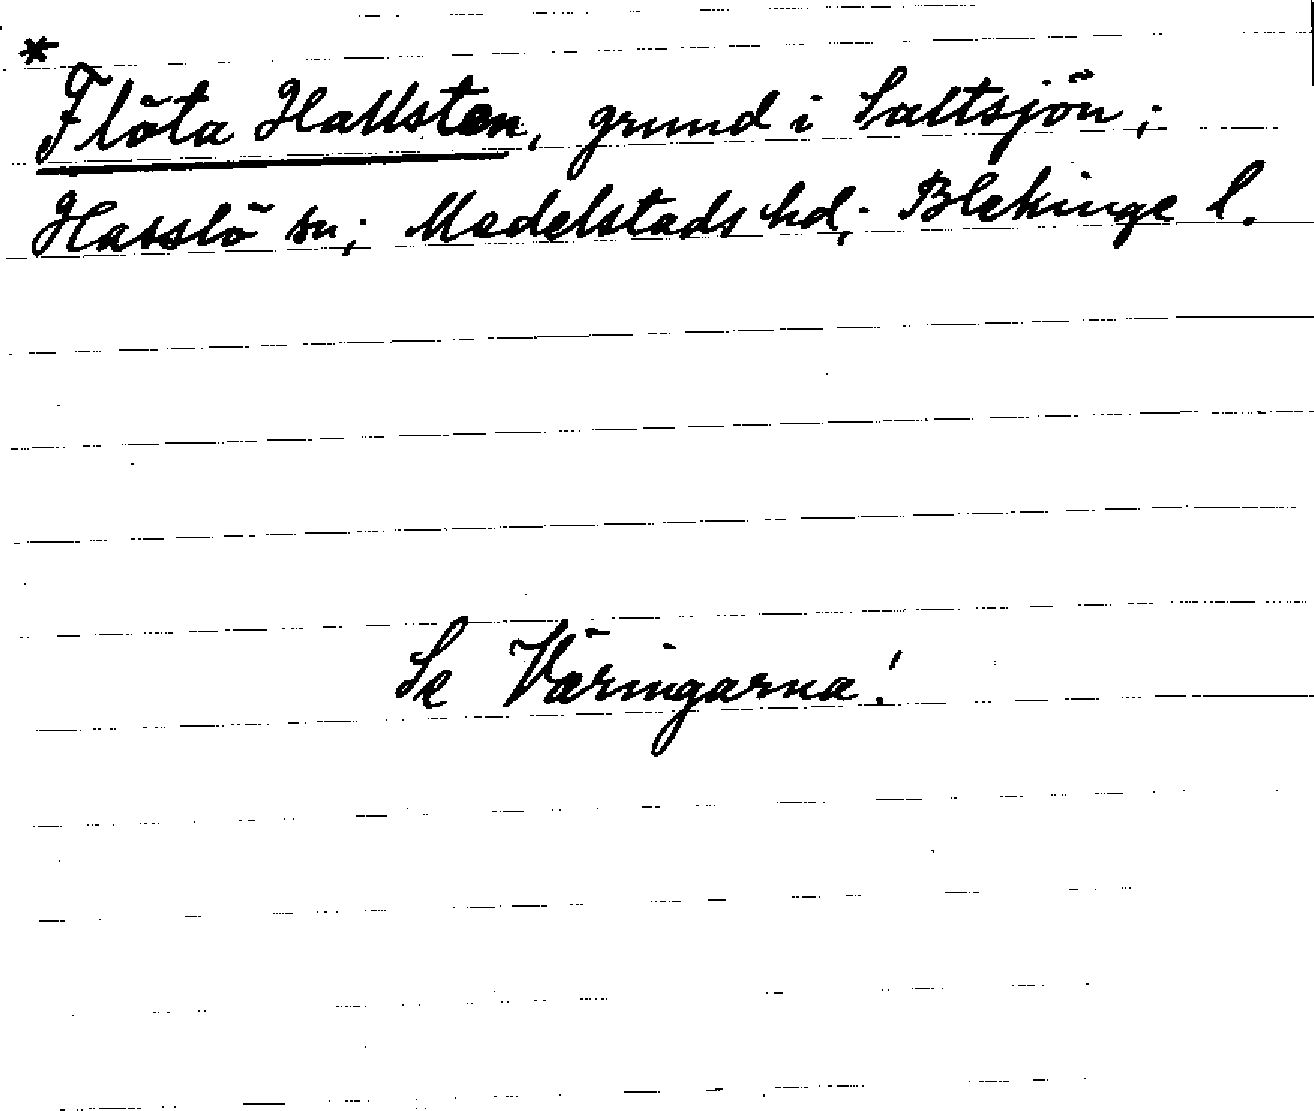 *
Flöta Hallsten, grund i Saltsjön;
Hasslö sn; Medelstads hd; Blekinge l.
Se Väringarna!